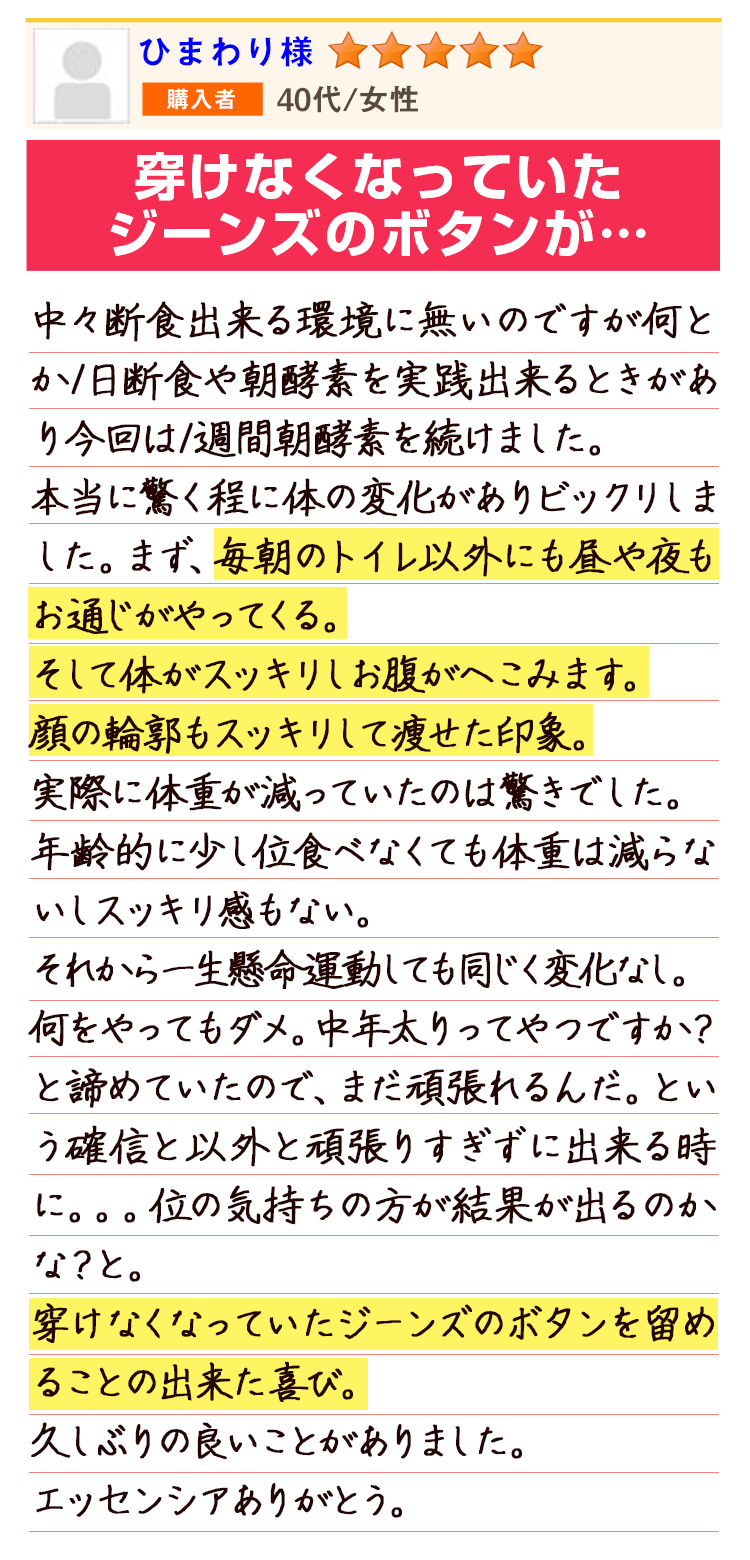 ひまわり様
購入者 40代/女性
穿けなくなっていた
ジーンズのボタンが…
中々断食出来る環境に無いのですが何と
か1日断食や朝酵素を実践出来るときがあ
り今回は1週間朝酵素を続けました。
本当に驚く程に体の変化がありビックリしま
した。まず、毎朝のトイレ以外にも昼や夜も
お通じがやってくる。
そして体がスッキリしお腹がへこみます。
顔の輪郭もスッキリして痩せた印象。
実際に体重が減っていたのは驚きでした。
年齢的に少し位食べなくても体重は減らな
いしスッキリ感もない。
それから一生懸命運動しても同じく変化なし。
何をやってもダメ。中年太りってやつですか?
と諦めていたので、まだ頑張れるんだ。とい
う確信と以外と頑張りすぎずに出来る時
に。。。位の気持ちの方が結果が出るのか
な?と。
穿けなくなっていたジーンズのボタンを留め
ることの出来た喜び。
久しぶりの良いことがありました。
エッセンシアありがとう。